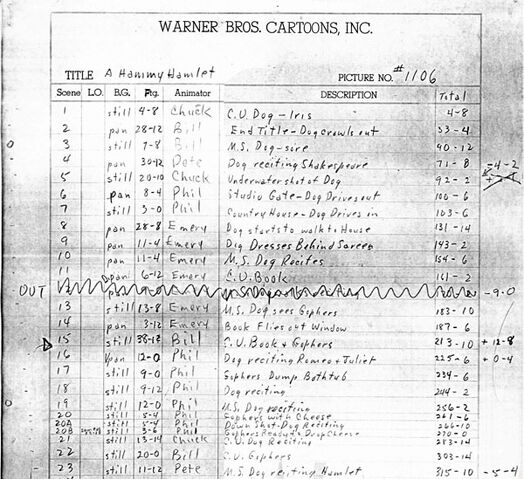 WARNER BROS. CARTOONS, INC.
TITLE A Hammy Hamlet PICTURE NO. #1106
Scene L.O. B.G. Ftg. Animator DESCRIPTION Total
1 still 4-8 Chuck C.U. Dog - Iris 4-8
2 pan 28-12 Bill End Title - Dog crawls out 33-4
3 still 7-8 Bill M.S. Dog - sore 40-12
4 pan 30-12 Pete Dog reciting Shakespeare 71-8 -4-2
5 still 20-10 Chuck Underwater shot of Dog 92-2
6 pan 8-4 Phil Studio Gate - Dog Drives out 100-6
7 still 3-0 Phil Country House - Dog Drives in 103-6
8 pan 28-8 Emery Dog starts to walk to House 131-14
9 pan 11-4 Emery Dog Dresses Behind Screen 143-2
10 pan 11-4 Emery M.S. Dog Recites 154-6
11 pan 6-12 Emery C.U. Book 161-2
OUT -9-0
13 still 13-8 Emery M.S. Dog sees Gophers 183-10
14 pan 3-12 Emery Book Flies out Window 187-6
15 still 38-12 Bill C.U. Book & Gophers 213-10 +12-8
16 Vpan 12-0 Phil Dog reciting Romeo & Juliet 225-6 +0-4
17 still 9-0 Phil Gophers Dump Bathtub 234-6
18 still 9-12 Phil Dog reciting 244-2
19 still 12-0 Phil M.S. Dog reciting 256-2
20 still 5-4 Phil Gophers with Cheese 261-6
20A still 5-4 Phil Down Shot - Dog Reciting 266-10
20B still 3-6 Phil Gophers Ready to Drop Cheese 270-0
21 still 13-14 Chuck C.U. Dog Reciting 283-14
22 still 20-0 Bill C.U. Gophers 303-14
23 still 11-12 Pete M.S. Dog reciting Hamlet 315-10 -5-4